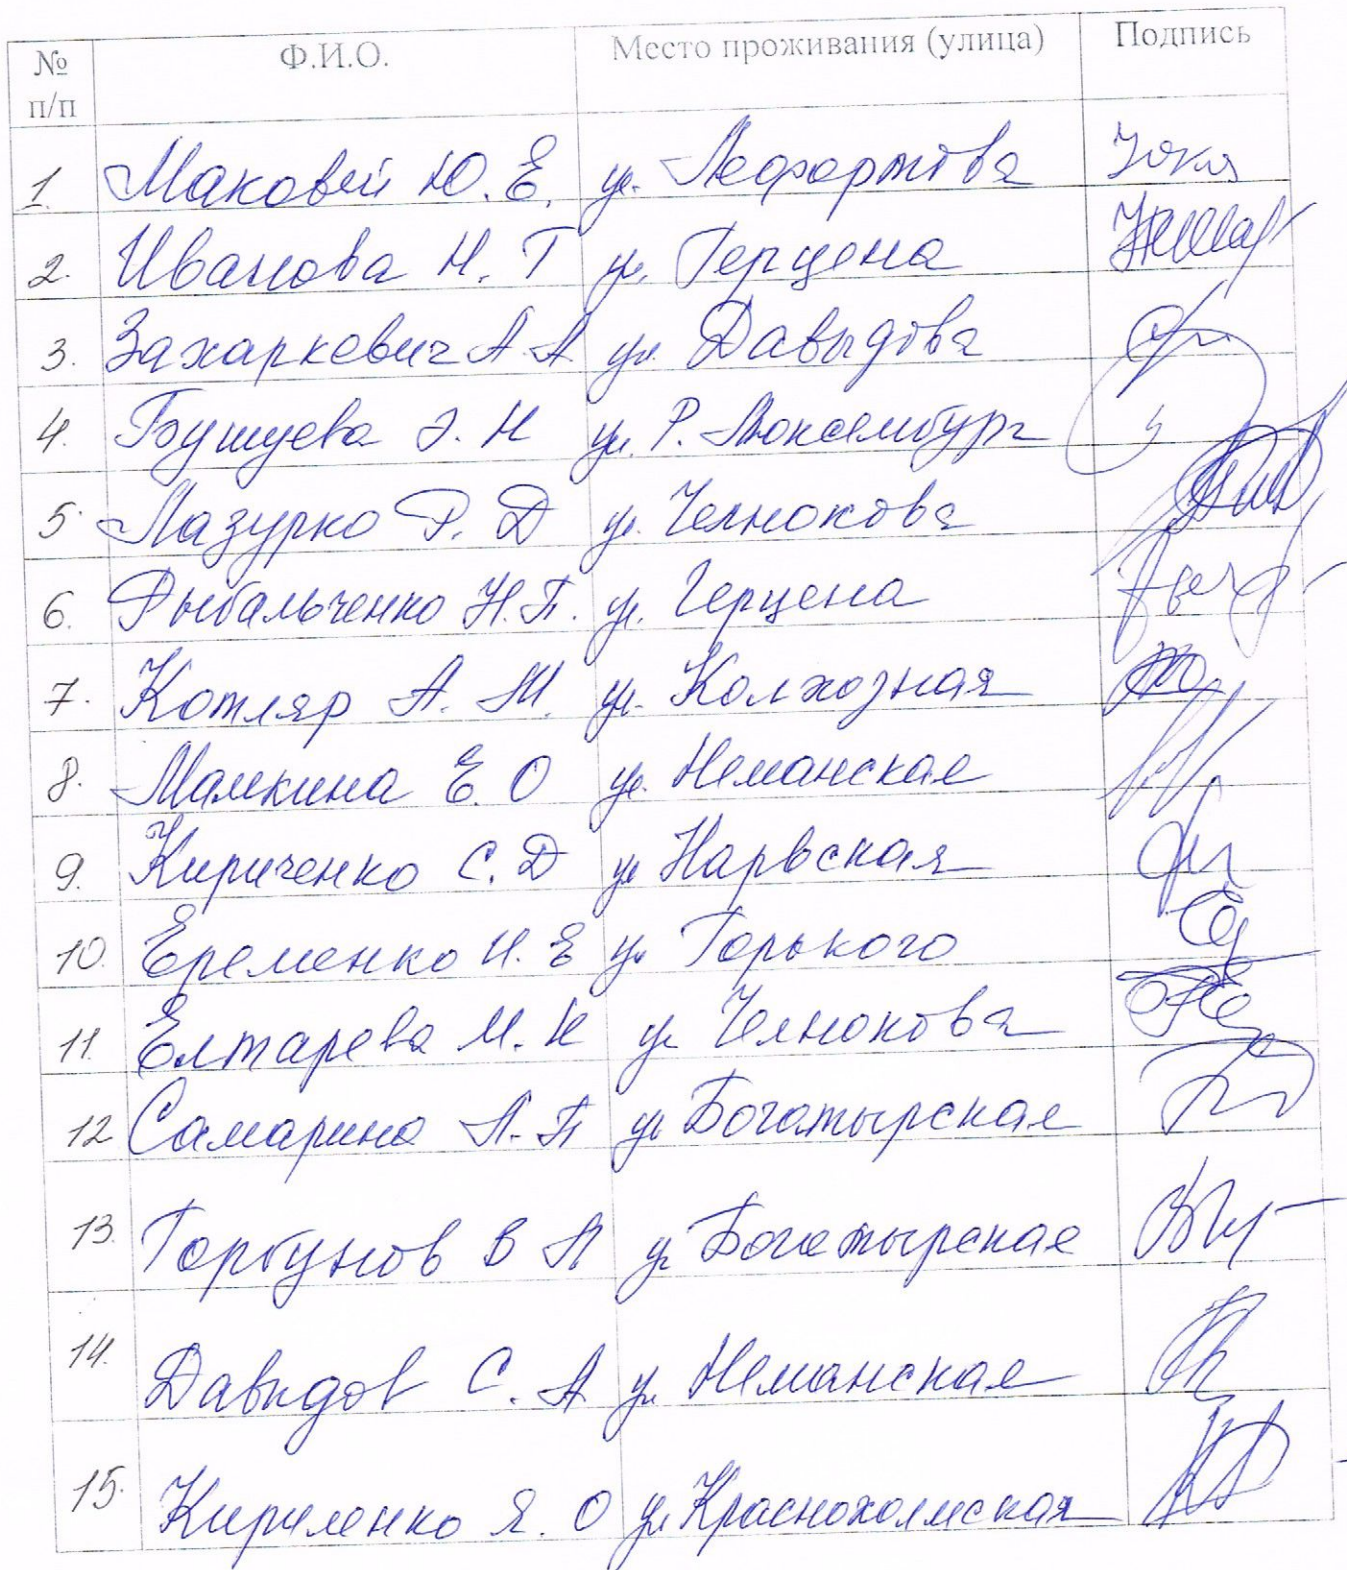 № п/п Ф.И.О. Место проживания (улица) Подпись
1. Маковей Ю. Е. ул. Лефортова
2. Иванова Н. Т ул. Герцена
3. Захаркевич А А ул. Давыдова
4. Бушуева Э. Н ул. Р. Люксембург
5. Мазурко Р. Д ул. Челнокова
6. Рыбальченко Н. П. ул. Герцена
7. Котляр А. М. ул. Колхозная
8. Мамкина Е. О ул. Неманская
9. Кириченко С. Д ул Нарвская
10. Еременко И. Е ул Горького
11. Елтарева М. Н ул Челнокова
12 Самарина Л. П ул Богатырская
13. Горбунов В А ул Богатырская
14. Давидов С. А ул. Неманская
15. Кириленко Я. О ул Краснохолмская